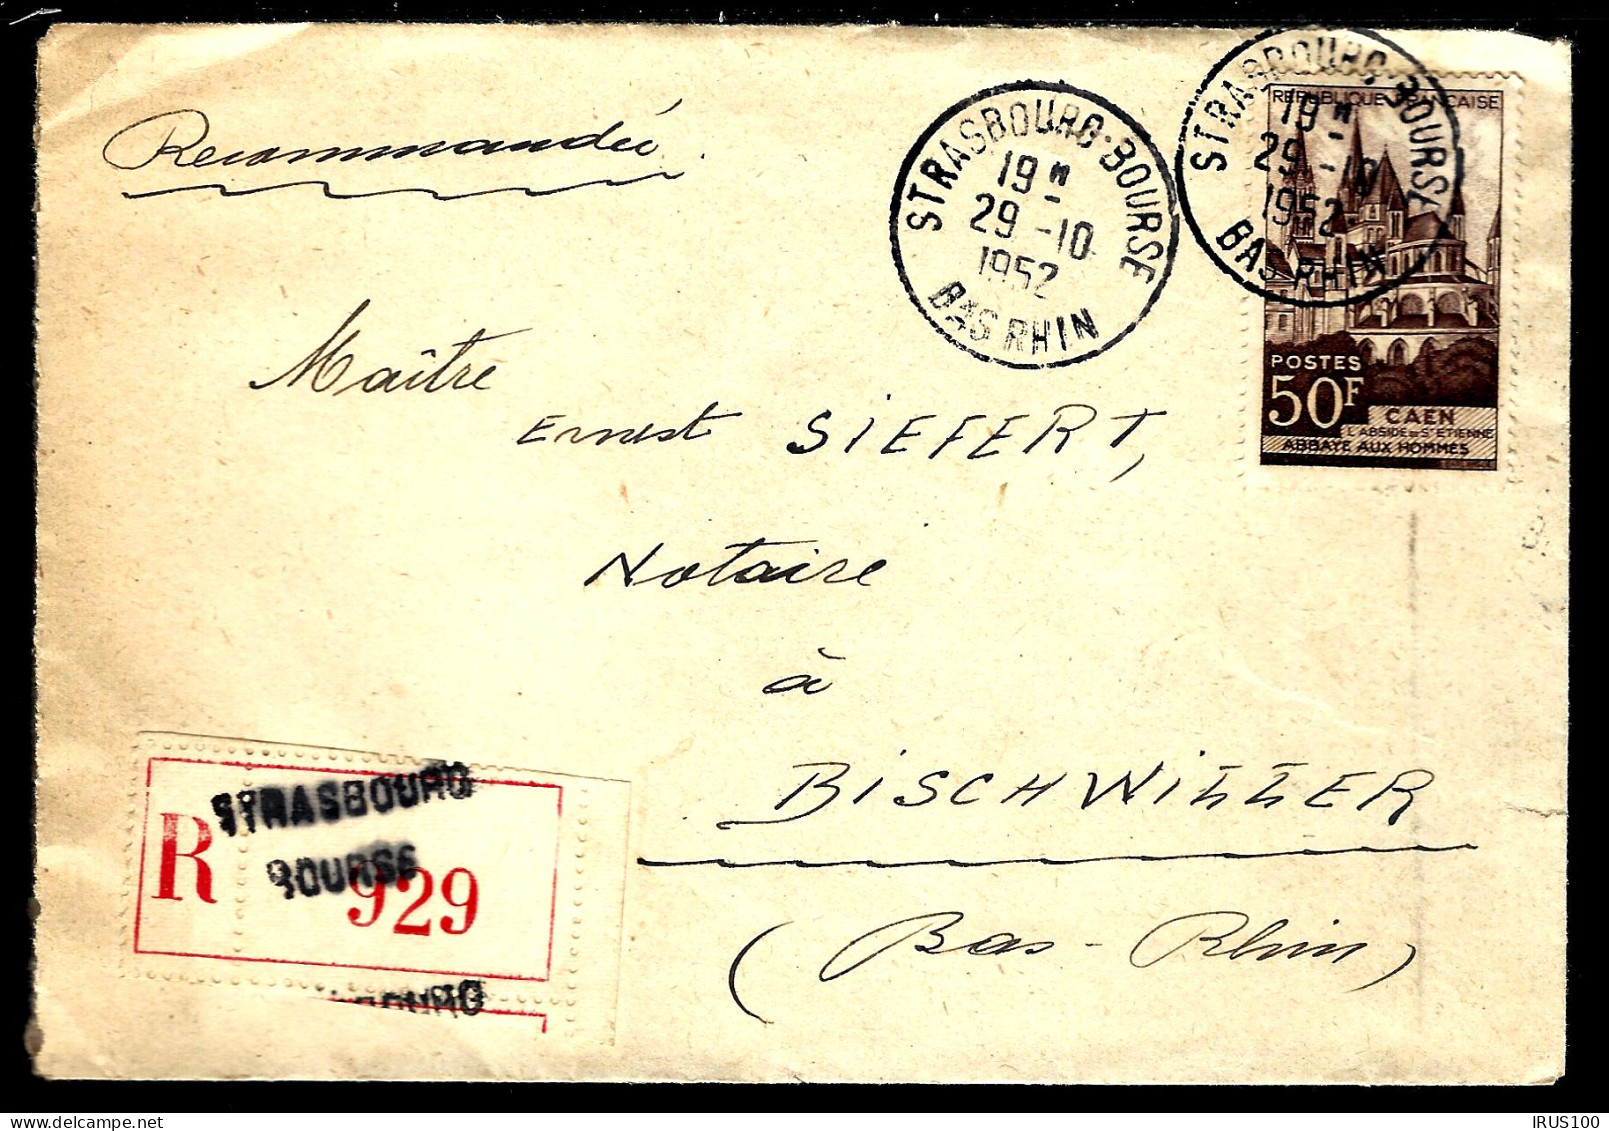 Recommandée
STRASBOURG-BOURSE
19H
29-10
1952
BAS RHIN
STRASBOURG-BOURSE
19H
29-10
1952
BAS RHIN
REPUBLIQUE FRANCAISE
POSTES
50F
CAEN
L'ABSIDE DE ST ETIENNE
ABBAYE AUX HOMMES
Maître
Ernest SIEFERT,
Notaire
à
BISCHWILLER
(Bas-Rhin)
STRASBOURG
BOURSE
R 929
IRUS100